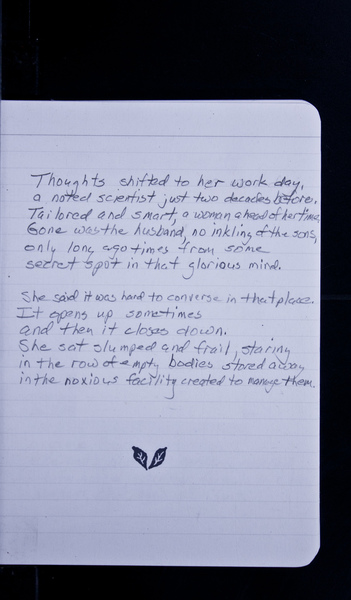 Thoughts shifted to her work day,
a noted scientist just two decades before.
Tailored and smart, a woman ahead of her time.
Gone was the husband, no inkling of the sons,
only long ago times from some
secret spot in that glorious mind.
She said it was hard to converse in that place.
It opens up sometimes
and then it closes down.
She sat slumped and frail, staring
in the row of empty bodies stored away
in the noxious facility created to manage them.